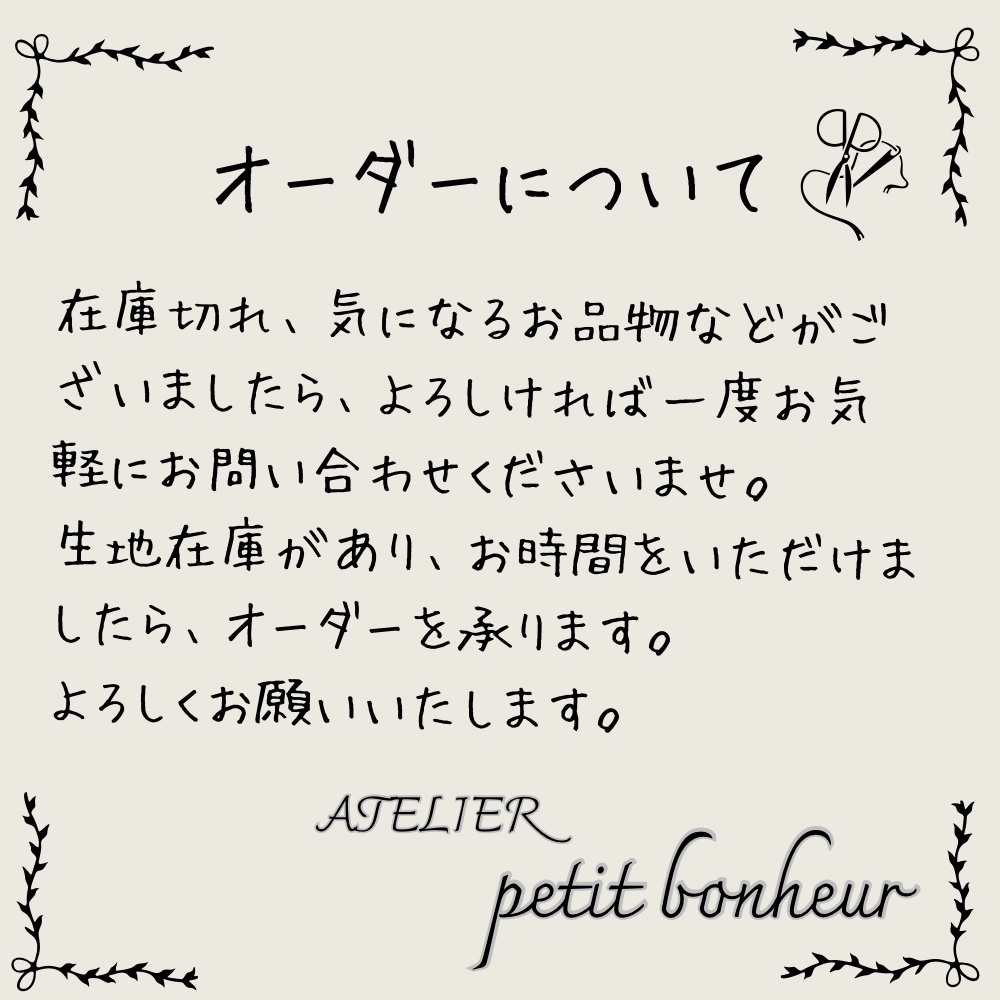 オーダーについて
在庫切れ、気になるお品物などがご
ざいましたら、よろしければ一度お気
軽にお問い合わせくださいませ。
生地在庫があり、お時間をいただけま
したら、オーダーを承ります。
よろしくお願いいたします。
ATELIER
petit bonheur